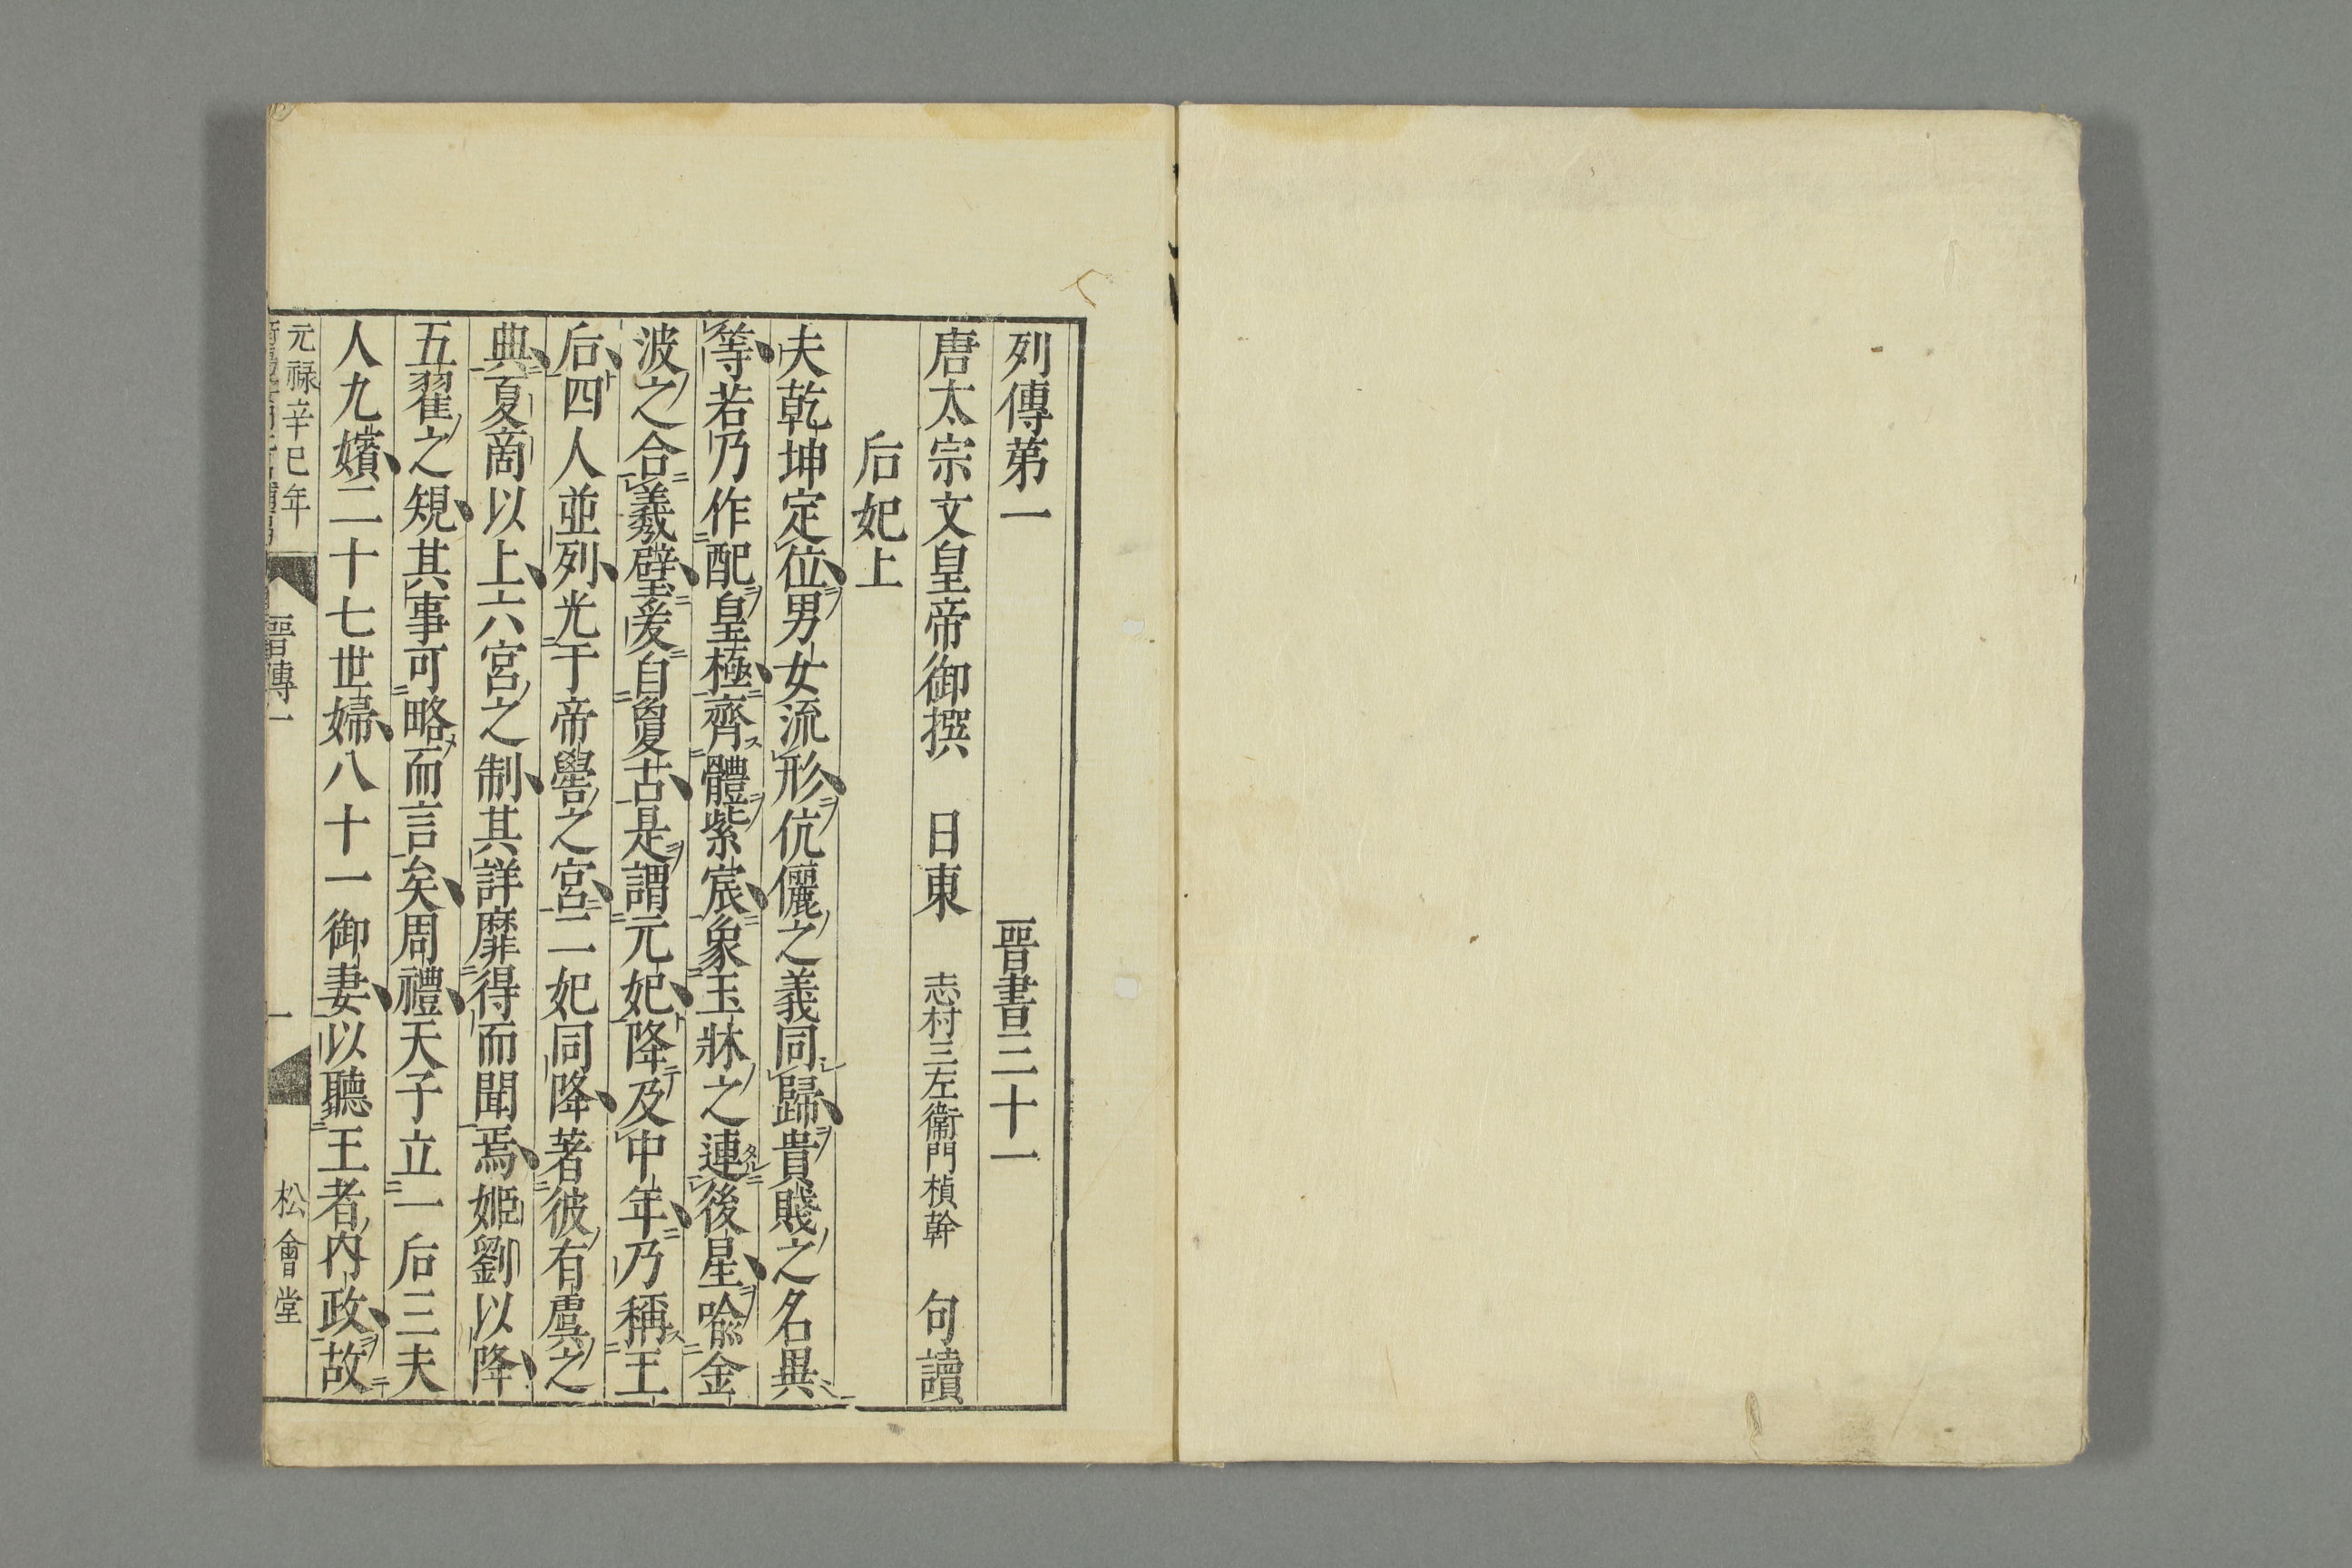 列傳第一　　　　　　　晉書三十一
唐太宗文皇帝御撰　日東　志村三左衞門楨幹　句讀
后妃上
夫乾坤定位男女流形伉儷之義同歸貴賤之名異
等若乃作配皇極齊體紫宸象玉牀之連後星喩金
波之合羲璧爰自敻古是謂元妃降及中年乃稱王
后四人並列光于帝嚳之宮二妃同降著彼有虞之
典夏商以上六宮之制其詳靡得而聞焉姬劉以降
五翟之規其事可略而言矣周禮天子立一后三夫
人九嬪二十七世婦八十一御妻以聽王者內政故
元禄辛巳年
晉傳一　一　松會堂